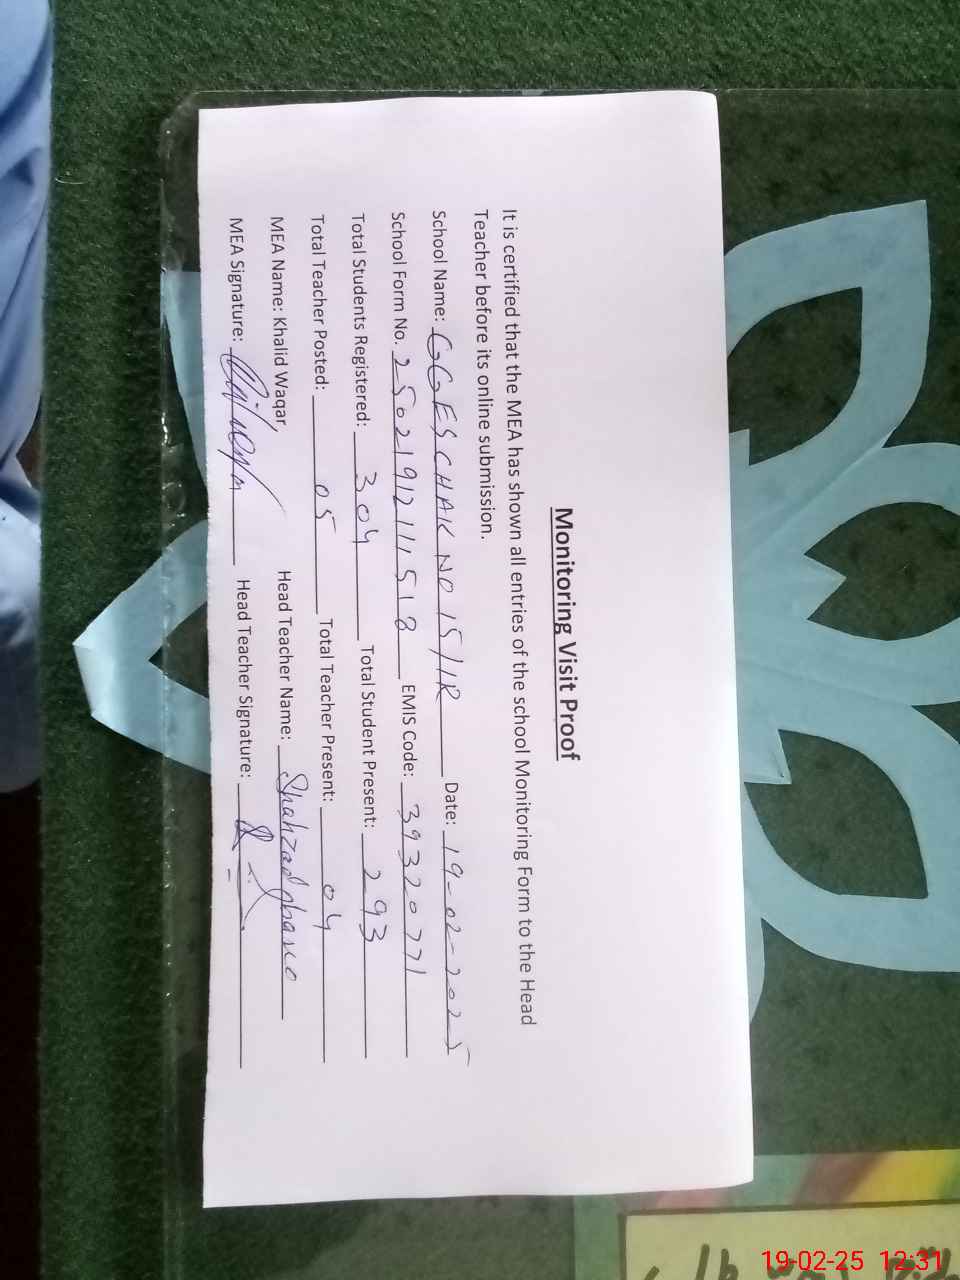 Monitoring Visit Proof
It is certified that the MEA has shown all entries of the school Monitoring Form to the Head
Teacher before its online submission.
School Name: GGES CHAK NO 15/1R Date: 19-02-2025
School Form No. 2502191211518 EMIS Code: 39320771
Total Students Registered: 304 Total Student Present: 293
Total Teacher Posted: 05 Total Teacher Present: 04
MEA Name: Khalid Waqar Head Teacher Name: Shahzad
MEA Signature: Head Teacher Signature:
19-02-25 12:31